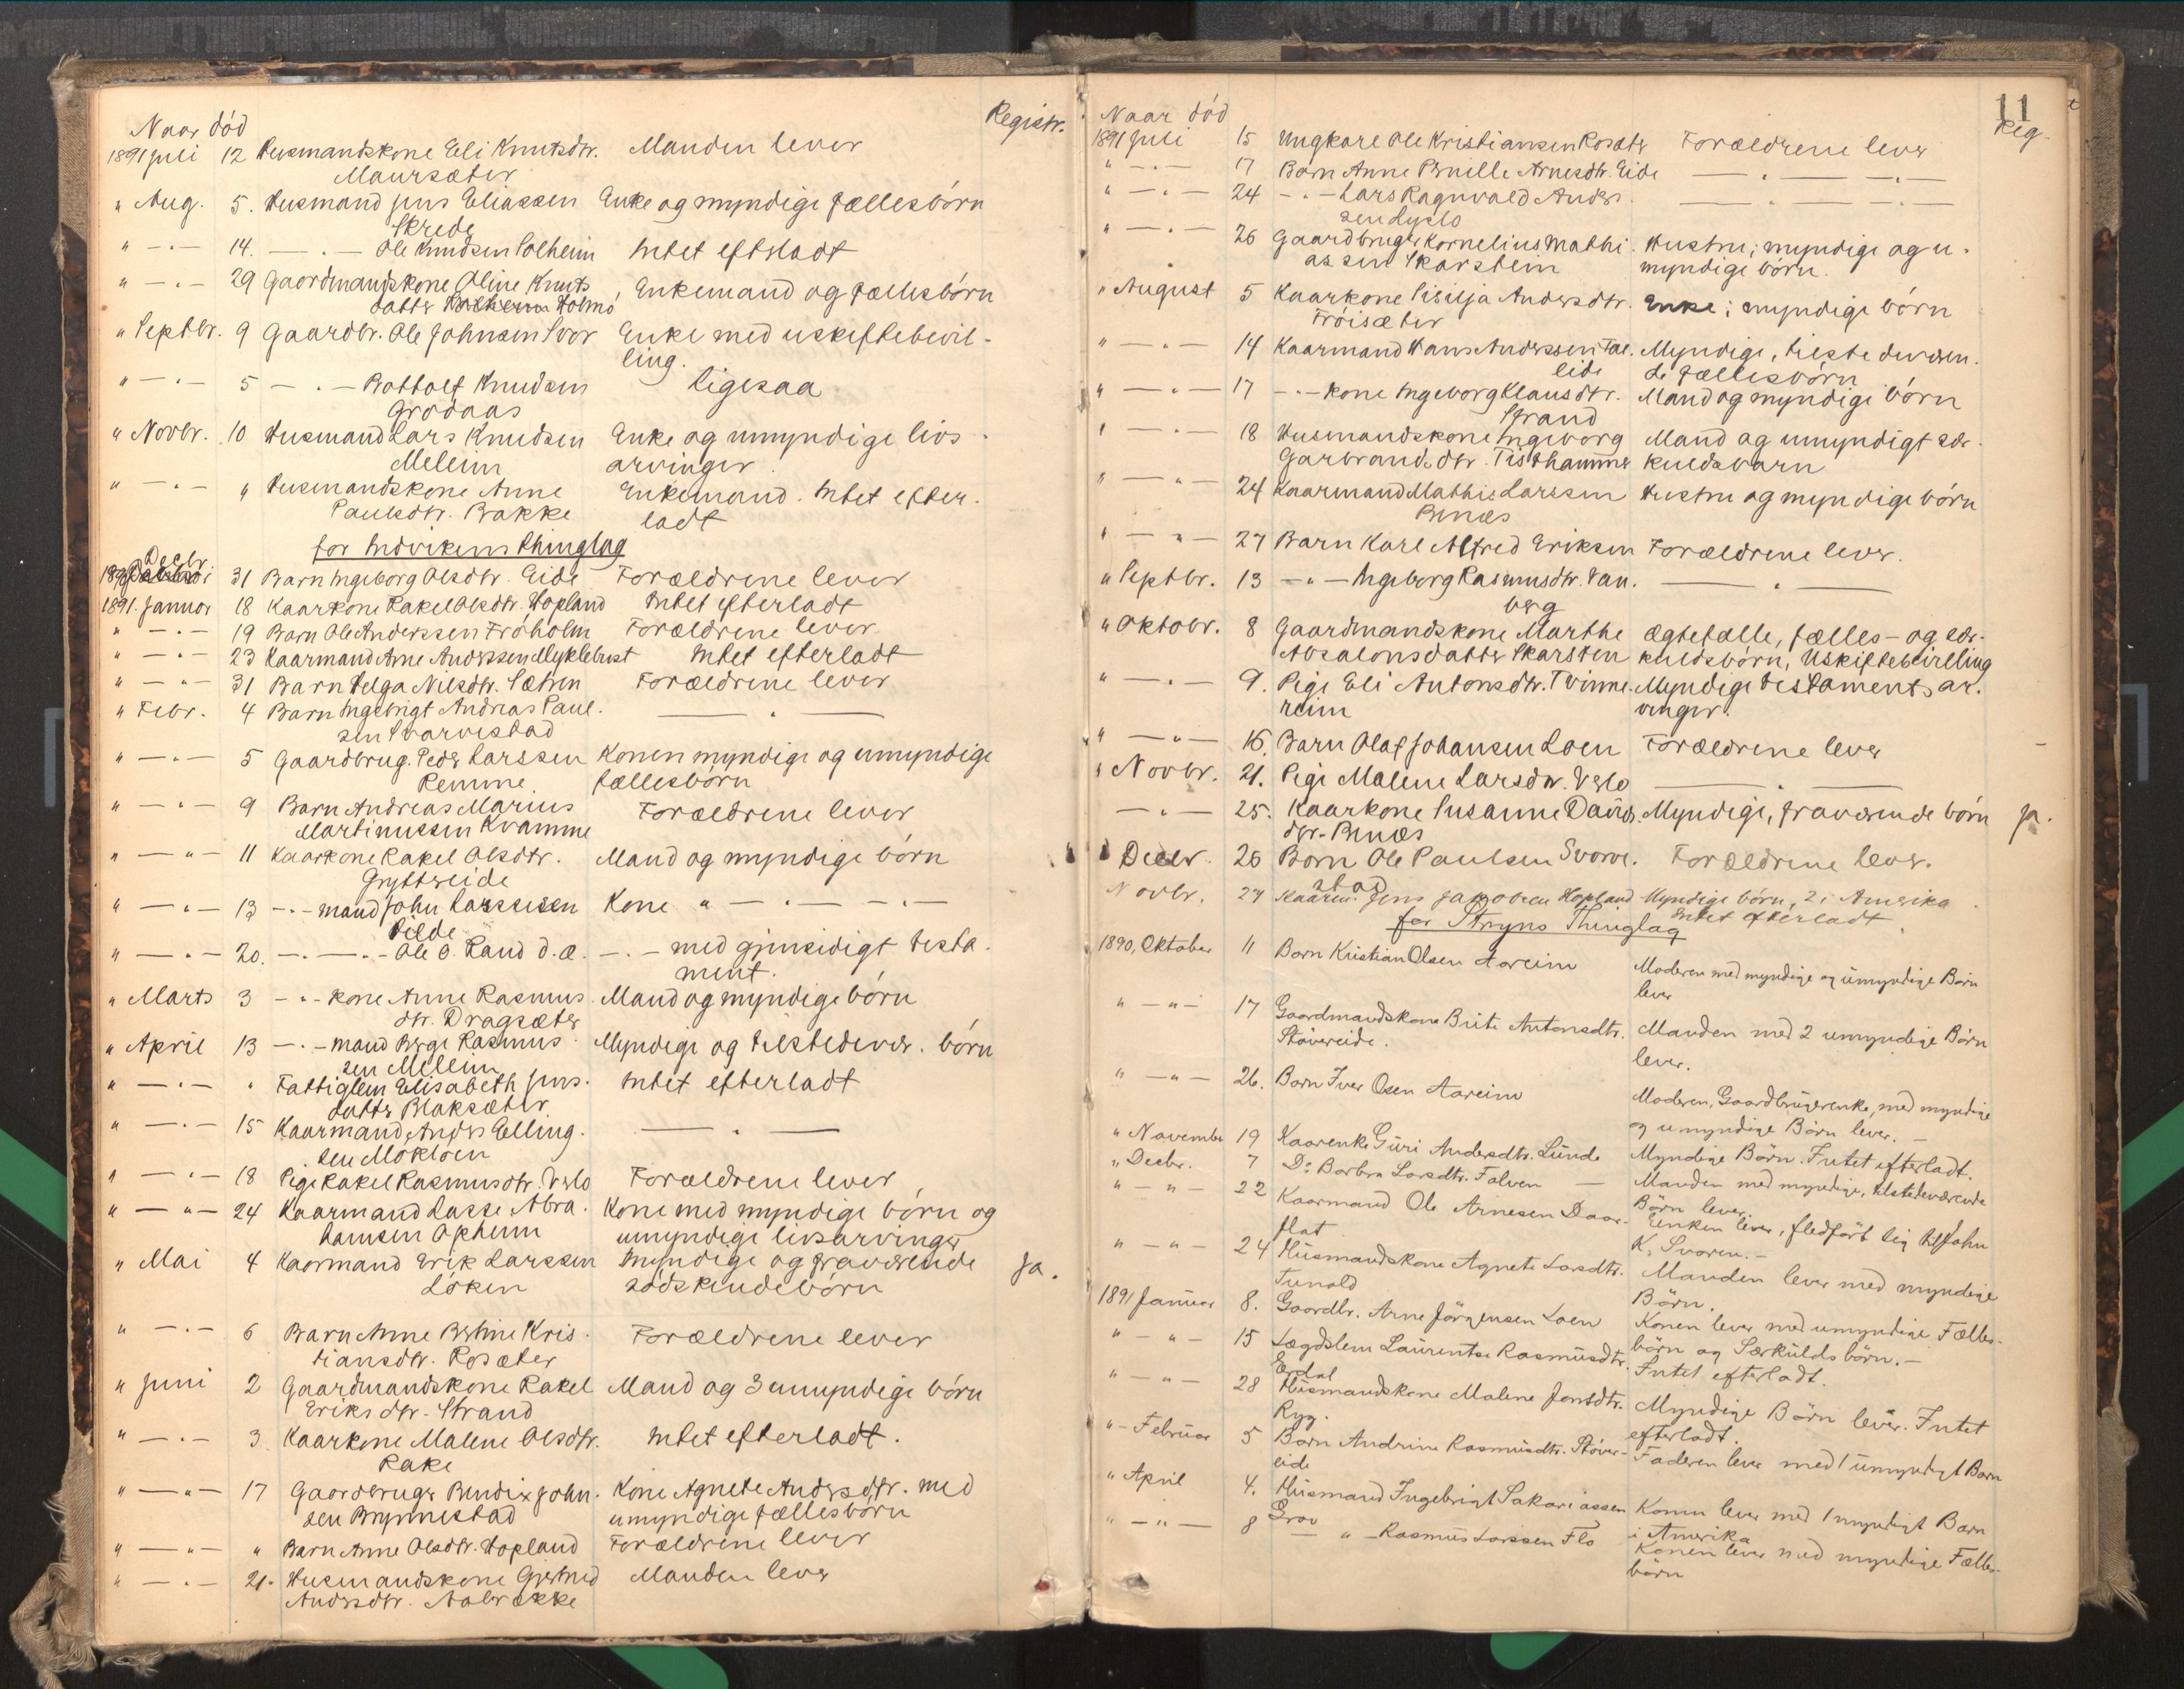 Naar död
Registr.
1891 Juli 12 Husmandskone Eli Knutsdtr. Manden lever
Maursæter
" Aug. 5. Husmand Jens Eliassen Enke og myndige fællesbörn
Skrede
" — . — 14. — . — Ole Knudsen Solheim Intet efterladt
" — . — 29 Gaardmandskone Oline Knuts Enkemand og fællesbörn
datter Holmö
" Septbr. 9 Gaardbr. Ole Johnsen Svor Enke med uskiftebevil-
ling.
" — . — 5 — . — Bottolf Knudsen ligesaa
Grodaas
" Novbr. 10 Husmand Lars Knudsen Enke og umyndige livs-
Meleim arvinger.
" — . — " Husmandskone Anne Enkemand. Intet efter-
Paulsdtr. Bakke ladt
for Indvikens Thinglag
Decbr.
1890 31 Barn Ingeborg Olsdtr. Eide Forældrene lever
1891. Januar 18 Kaarkone Rakel Olsdtr. Hopland Intet efterladt
" — . — 19 Barn Ole Anderssen Fröholm Forældrene lever
" — . — 23 Kaarmand Arne Anderssen Myklebust Intet efterladt
" — " — 31 Barn Helga Nilsdtr. Sætren Forældrene lever
" Febr. 4 Barn Ingebrigt Andreas Paul- — " —
sen Svarvestad
" — . — 5 Gaardbrug. Peder Larssen Konen myndige og umyndige
Remme. fællesbörn
" — . — 9 Barn Andreas Marius Forældrene lever
Martinussen Kvamme
" — " — 11 Kaarkone Rakel Olsdtr. Mand og myndige börn
Gryttereide
" — . — 13 — . — mand John Larssen Kone " — . — — . —
Hilde
" — . — 20. — . — . — Ole O. Rand d.æ. — . — med gjensidigt testa-
ment.
" Marts 3 — . — kone Anne Rasmus- Mand og myndige börn
dtr. Dragsæter
" April 13 — . — mand Berge Rasmus- Myndige og tilstedevær. börn
sen Meleim
" — . — " Fattiglem Elisabeth Jens- Intet efterladt
datter Blaksæter.
" — . — 15 Kaarmand Anders Elling- — " —
sen Mokloen
" — . — 18 Pige Rakel Rasmusdtr. Verlo Forældrene lever
" — " — 24 Kaarmand Lasse Abra- Kone med myndige börn og
hamsen Opheim umyndige livsarvinger
" Mai 4 Kaarmand Erik Larssen Myndige og fraværende Ja.
Löken södskendebörn
" — . — 6 Barn Anne Bertine Kris- Forældrene lever
tiansdtr. Rosæter
" Juni 2 Gaardmandskone Rakel Mand og 3 umyndige börn
Eriksdtr. Strand
" — . — 3. Kaarkone Malene Olsdtr. Intet efterladt.
Rake
" — " — 17 Gaardbruger Bendix John- Kone Agnete Andersdtr. med
sen Brynnestad umyndige fællesbörn
" — " — " Barn Anne Olsdtr. Hopland Forældrene lever
" — . — 21. Husmandskone Gjertrud Manden lever
Andersdtr. Aabrække
11
Naar död
Reg.
1891 Juli 15 Ungkare Ole Kristiansen Rosæter Forældrene lever
" — . — 17 Barn Anne Pernille Arnesdtr. Eide — " — — . —
" — . — 24 — . — Lars Ragnvald Anders- — " — — . —
sen Lyslo
" — . — 26 Gaardbruger Kornelius Mathi- Hustru; myndige og u-
assen Skarstein myndige börn.
" August 5 Kaarkone Sisilja Andersdtr. Enke; myndige börn
Fröisæter
" — . — 14 Kaarmand Hans Anderssen Fal- Myndige, tilstedeværen-
eide de fællesbörn
" — " — 17 — . — kone Ingeborg Klausdtr. Mand og myndige börn
Strand
" — . — 18 Husmandskone Ingeborg Mand og umyndigt sær-
Garbrandsdtr. Tisthammer kuldsbarn
" — " — 24 Kaarmand Mathis Larssen Hustru og myndige börn
Brnæs
" — " — 27 Barn Karl Alfred Eriksen Forældrene lever.
" Septbr. 13 — " — Ingeborg Rasmusdtr. Van- — " —
berg
" Oktobr. 8 Gaardmandskone Marthe Ægtefælle, fælles- og sær-
Absalonsdatter Skarsten kuldsbörn, Uskiftebevilling
" — . — 9. Pige Eli Antonsdtr. Tvinne- Myndige testamentsar-
reim vinger.
" — " — 16. Barn Olaf Johansen Loen Forældrene lever
" Novbr. 21. Pige Malene Larsdtr. Verlo — " —
— " — 25. Kaarkone Susanne Davids- Myndige, fraværende börn Ja.
dtr. Brnæs
" Decbr. 26 Barn Ole Paulsen Svarve- Forældrene lever.
stad
Novbr. 27 Kaarm. Jens Jakobsen Hopland Myndige börn, 2 i Amerika.
Intet efterladt.
for Stryns Thinglag
1890, Oktober 11 Barn Kristian Olsen Aareim Moderen med myndige og umyndige Børn
lever
" — " — 17 Gaardmandskone Brite Antonsdtr. Manden med 2 umyndige Børn
Støvereide. lever.
" — " — 26. Barn Iver Osen Aareim Moderen, Gaardbrugerenke, med myndige
og umyndige Børn lever. —
" November 19 Kaarenke Guri Andersdtr. Lunde Myndige Børn. Intet efterladt.
" Decbr. 7 Do Barbra Larsdtr. Folven — Manden med myndige, tilstedeværende
Børn lever.
" — " — 22 Kaarmand Ole Arnesen Daar- Enken lever, fledført sig til John
flat K. Svoren. —
" — " — 24 Husmandskone Agnete Larsdtr. Manden lever med myndige
Tunold Børn.
1891 Januar 8. Gaardbr. Arne Jörgensen Loen Konen lever med umyndige Fælles-
børn og Særkuldsbörn. —
" — " — 15 Lægdslem Laurentse Rasmusdtr. Intet efterladt.
Erdal
" — " — 28 Husmandskone Malene Jonsdtr. Myndige Børn lever. Intet
Ryg. efterladt.
" — Februar 5 Barn Andrine Rasmusdtr. Støver- Faderen lever med 1 umyndigt Barn
eide
" April 4. Husmand Ingebrigt Sakariassen Konen lever med 1 myndigt Barn
Grov i Amerika
" — " — 8 — " — Rasmus Larssen Flo Konen lever med myndige Fælles-
børn